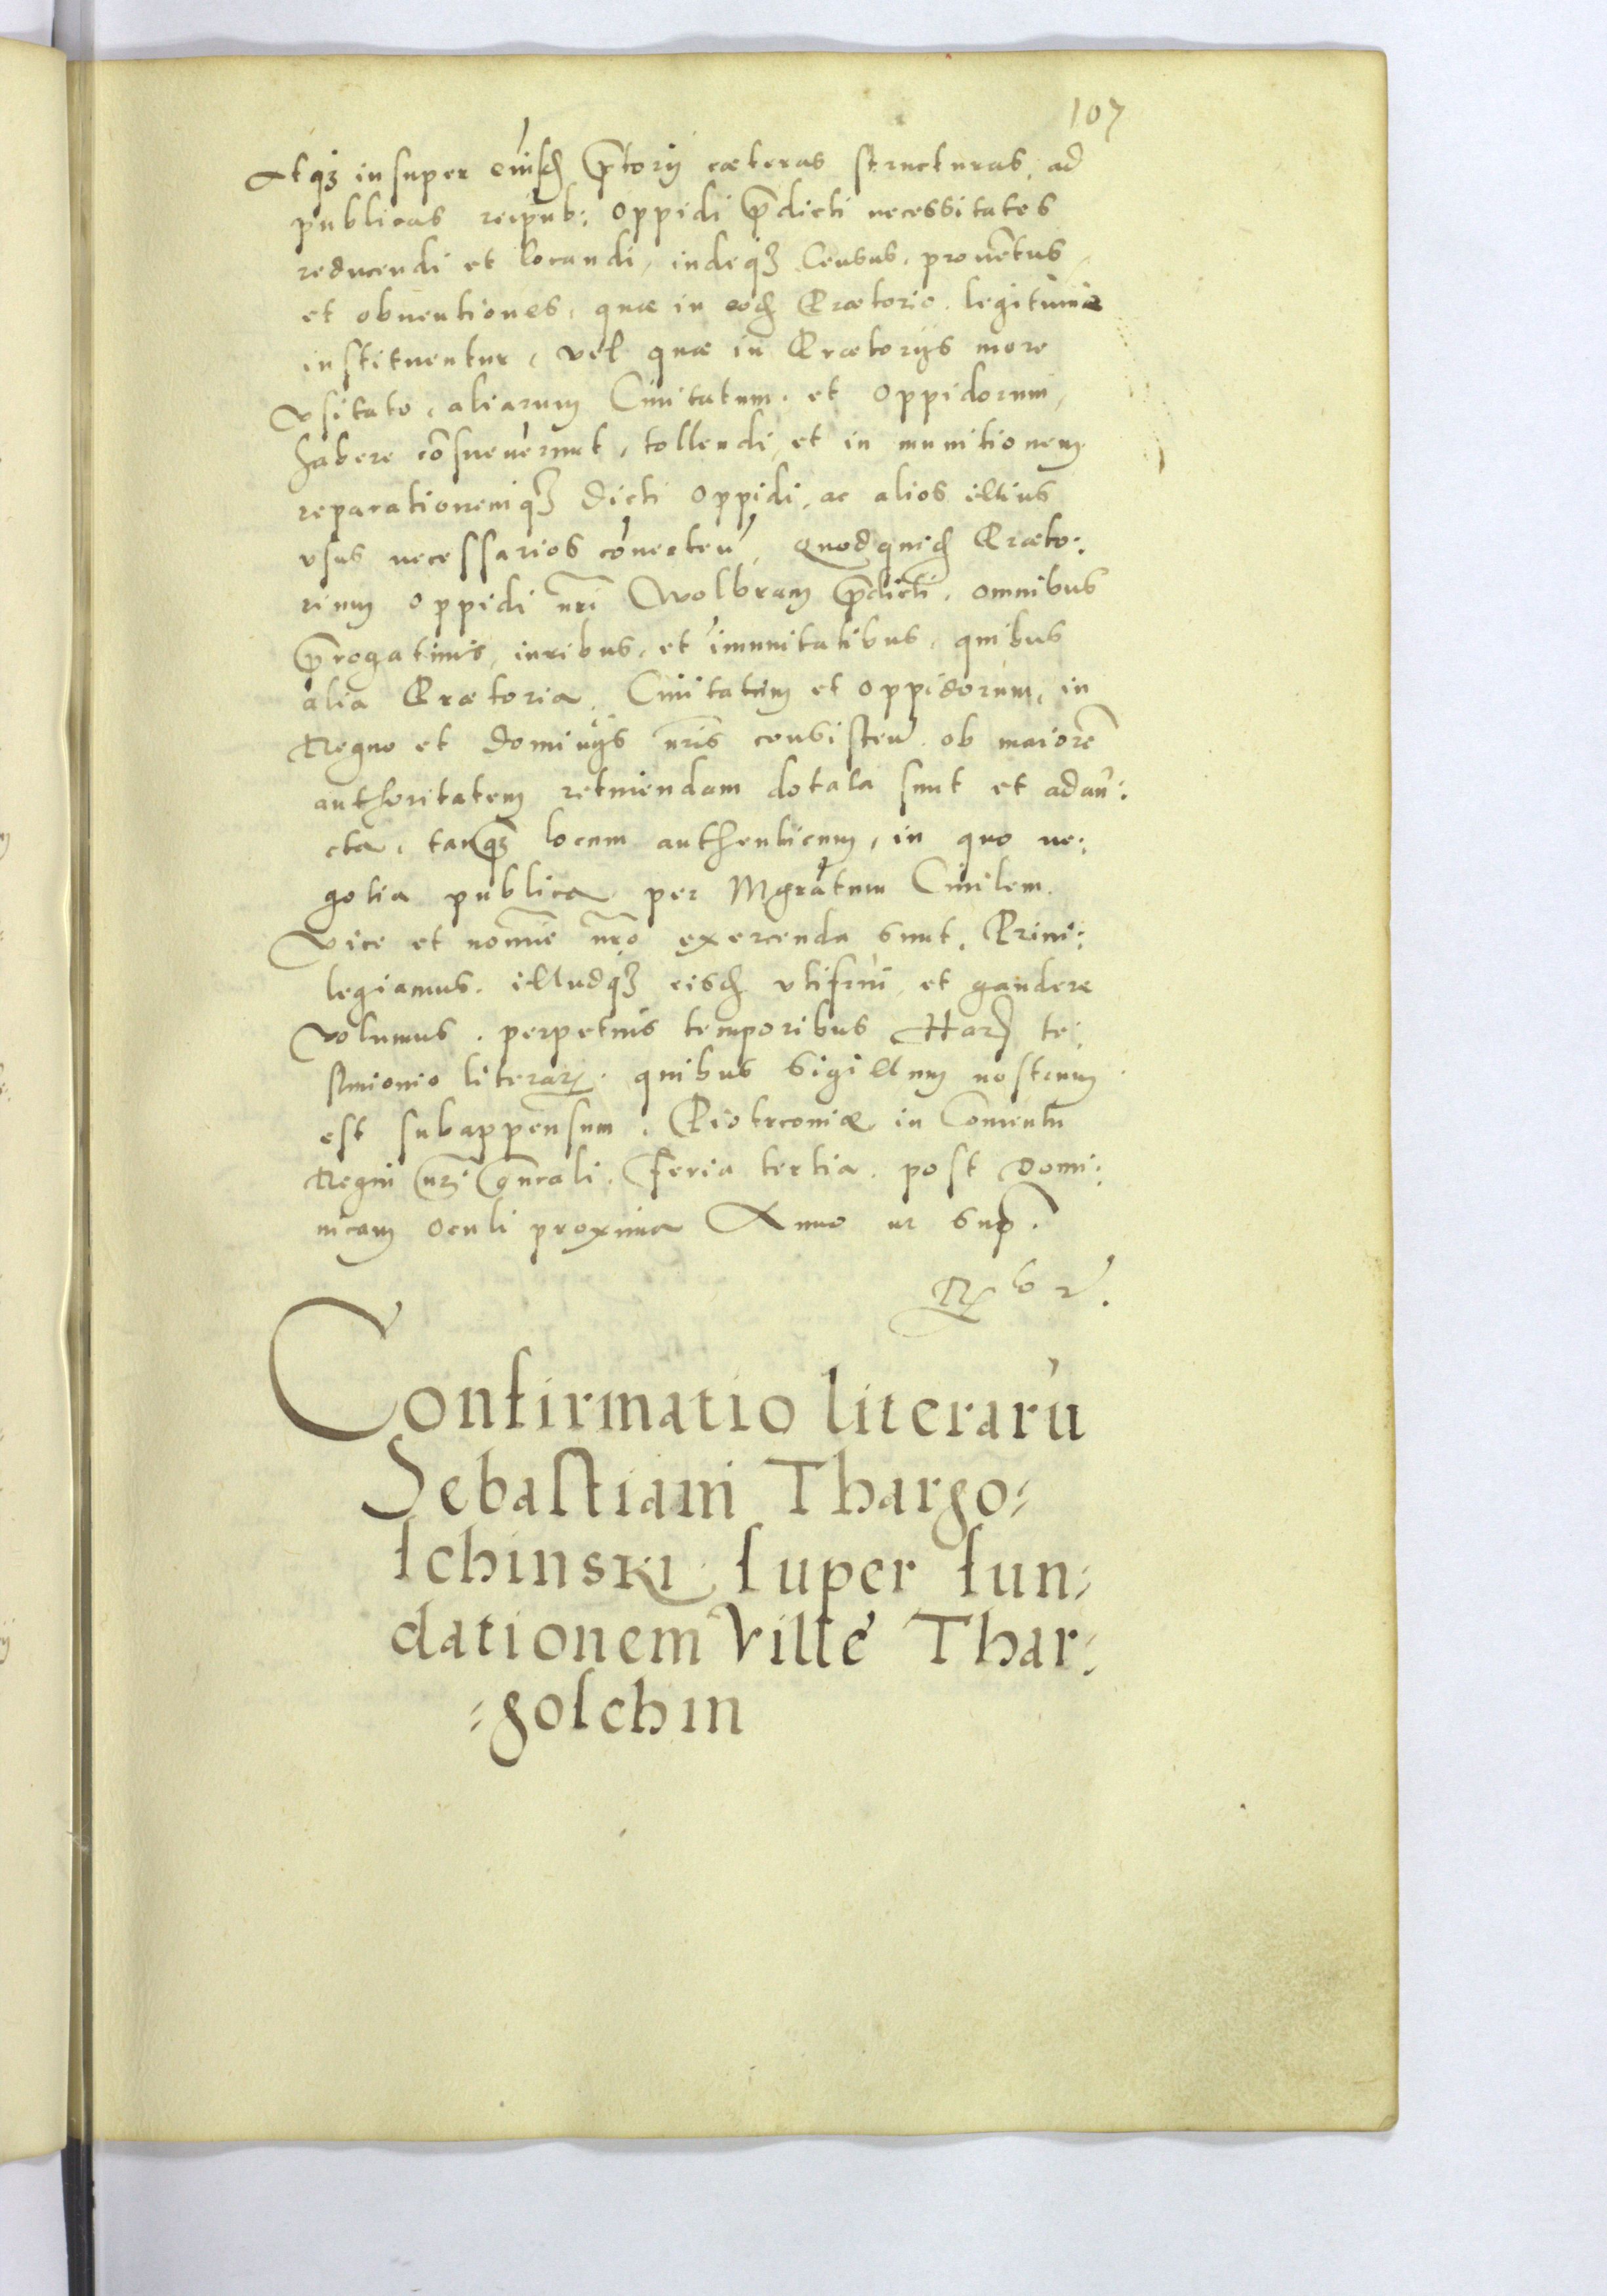 107
Atqꝫ insuper eiusd p̄torij cæteras structuras, ad
publicas reipub: oppidi p̄dicti necessitates
reducendi et locandi, indeqꝫ Census, proventus,
et obventiones, quæ in eod Prætorio legitimæ
instituentur, vel quæ in Prætorijs more
vsitato, aliarum Ciuitatum et oppidorum,
habere cōsueuerunt, tollendi, et in munitionem
reparationemqꝫ dicti oppidi, ac alios illius
vsus necessarios cōuerten̄, Quodquid Præto:
rium oppidi nr̄i Wolbram p̄dicti, omnibus
p̄rogatiuis, iuribus, et īmunitatibus, quibus
alia Prætoria, Ciuitatum et oppidorum, in
Regno et dominijs nr̄is consisten̄ ob maiorē
authoritatem retinendam dotata sunt et adau:
cta, tanqꝫ locum authenticum, in quo ne:
gotia publica per Mgrātum Ciuilem
Vice et nomīe nr̄o exercenda sunt, Priui:
legiamus, illudqꝫ eisd vtifrui, et gaudere
volumus, perpetuis temporibus Harꝫ te:
stimonio literarꝫ quibus Sigillum nostrum
est subappensum, Piotrcouiæ in Conuentu
Regni nr̄i Gn̄rali, Feria tertia post Domi:
nicam Oculi proxima Anno ut sup̄.
Confirmatio literarū
Sebastiani Thargo-
schinski super fun-
dationem Ville Thar-
-goschin